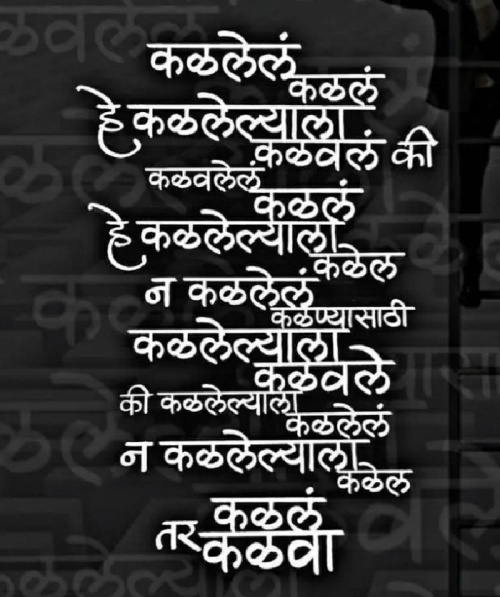 कळलेलं
कळलं
हे कळलेल्याला
कळवलं की
कळवलेलं
कळलं
हे कळलेल्याला
कळेल
न कळलेलं
कळण्यासाठी
कळलेल्याला
कळवले
की कळलेल्याला
कळलेलं
न कळलेल्याला
कळेल
कळलं
तर कळवा